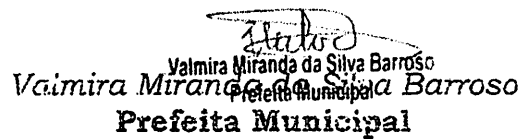 Valmira Miranda da Silva Barroso
Prefeita Municipal
Valmira Miranda da Silva Barroso
Prefeita Municipal